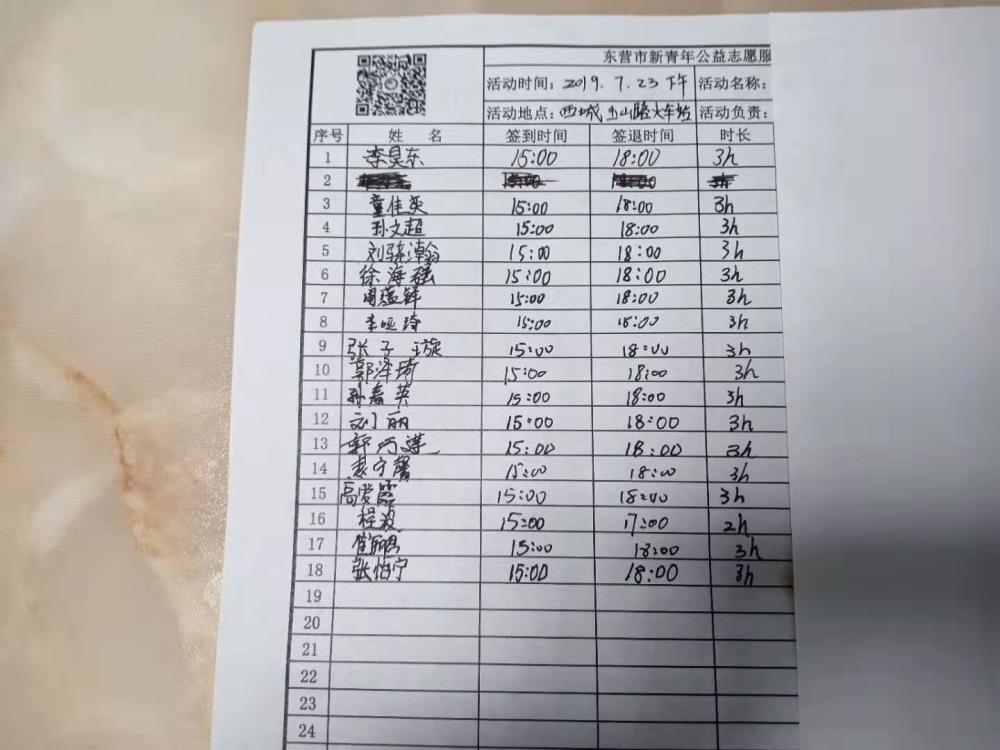 东营市新青年公益志愿服
活动时间：2019.7.23下午 活动名称：
活动地点：西城，玉山路火车站 活动负责：
序号 姓 名 签到时间 签退时间 时长
1 李昊东 15:00 18:00 3h
2
3 童佳英 15:00 18:00 3h
4 孙文超 15:00 18:00 3h
5 刘骐瀚 15:00 18:00 3h
6 徐海强 15:00 18:00 3h
7 周蕴铎 15:00 18:00 3h
8 李哑琦 15:00 18:00 3h
9 张子璇 15:00 18:00 3h
10 郭泽琦 15:00 18:00 3h
11 孙春英 15:00 18:00 3h
12 刘丽 15:00 18:00 3h
13 郭巧莲 15:00 18:00 3h
14 宁馨 15:00 18:00 3h
15 高爱霞 15:00 18:00 3h
16 程波 15:00 17:00 2h
17 崔丽娟 15:00 18:00 3h
18 张怡宁 15:00 18:00 3h
19
20
21
22
23
24